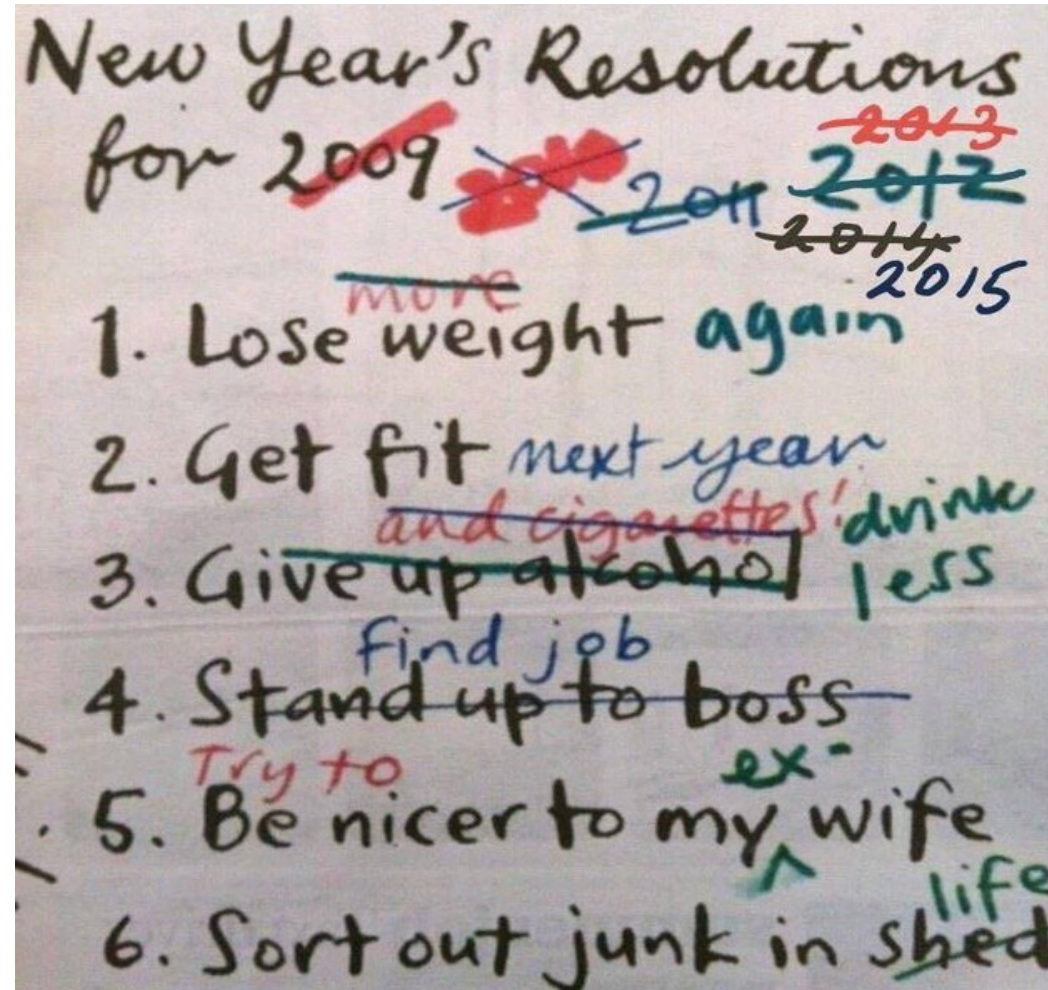 New Year's Resolutions
2013
for 2009 2011 2012
2014
2015
more
1. Lose weight again
2. Get fit next year
and cigarettes! drink
3. Give up alcohol less
Find job
4. Stand up to boss
Try to ex-
5. Be nicer to my wife
life
6. Sort out junk in shed